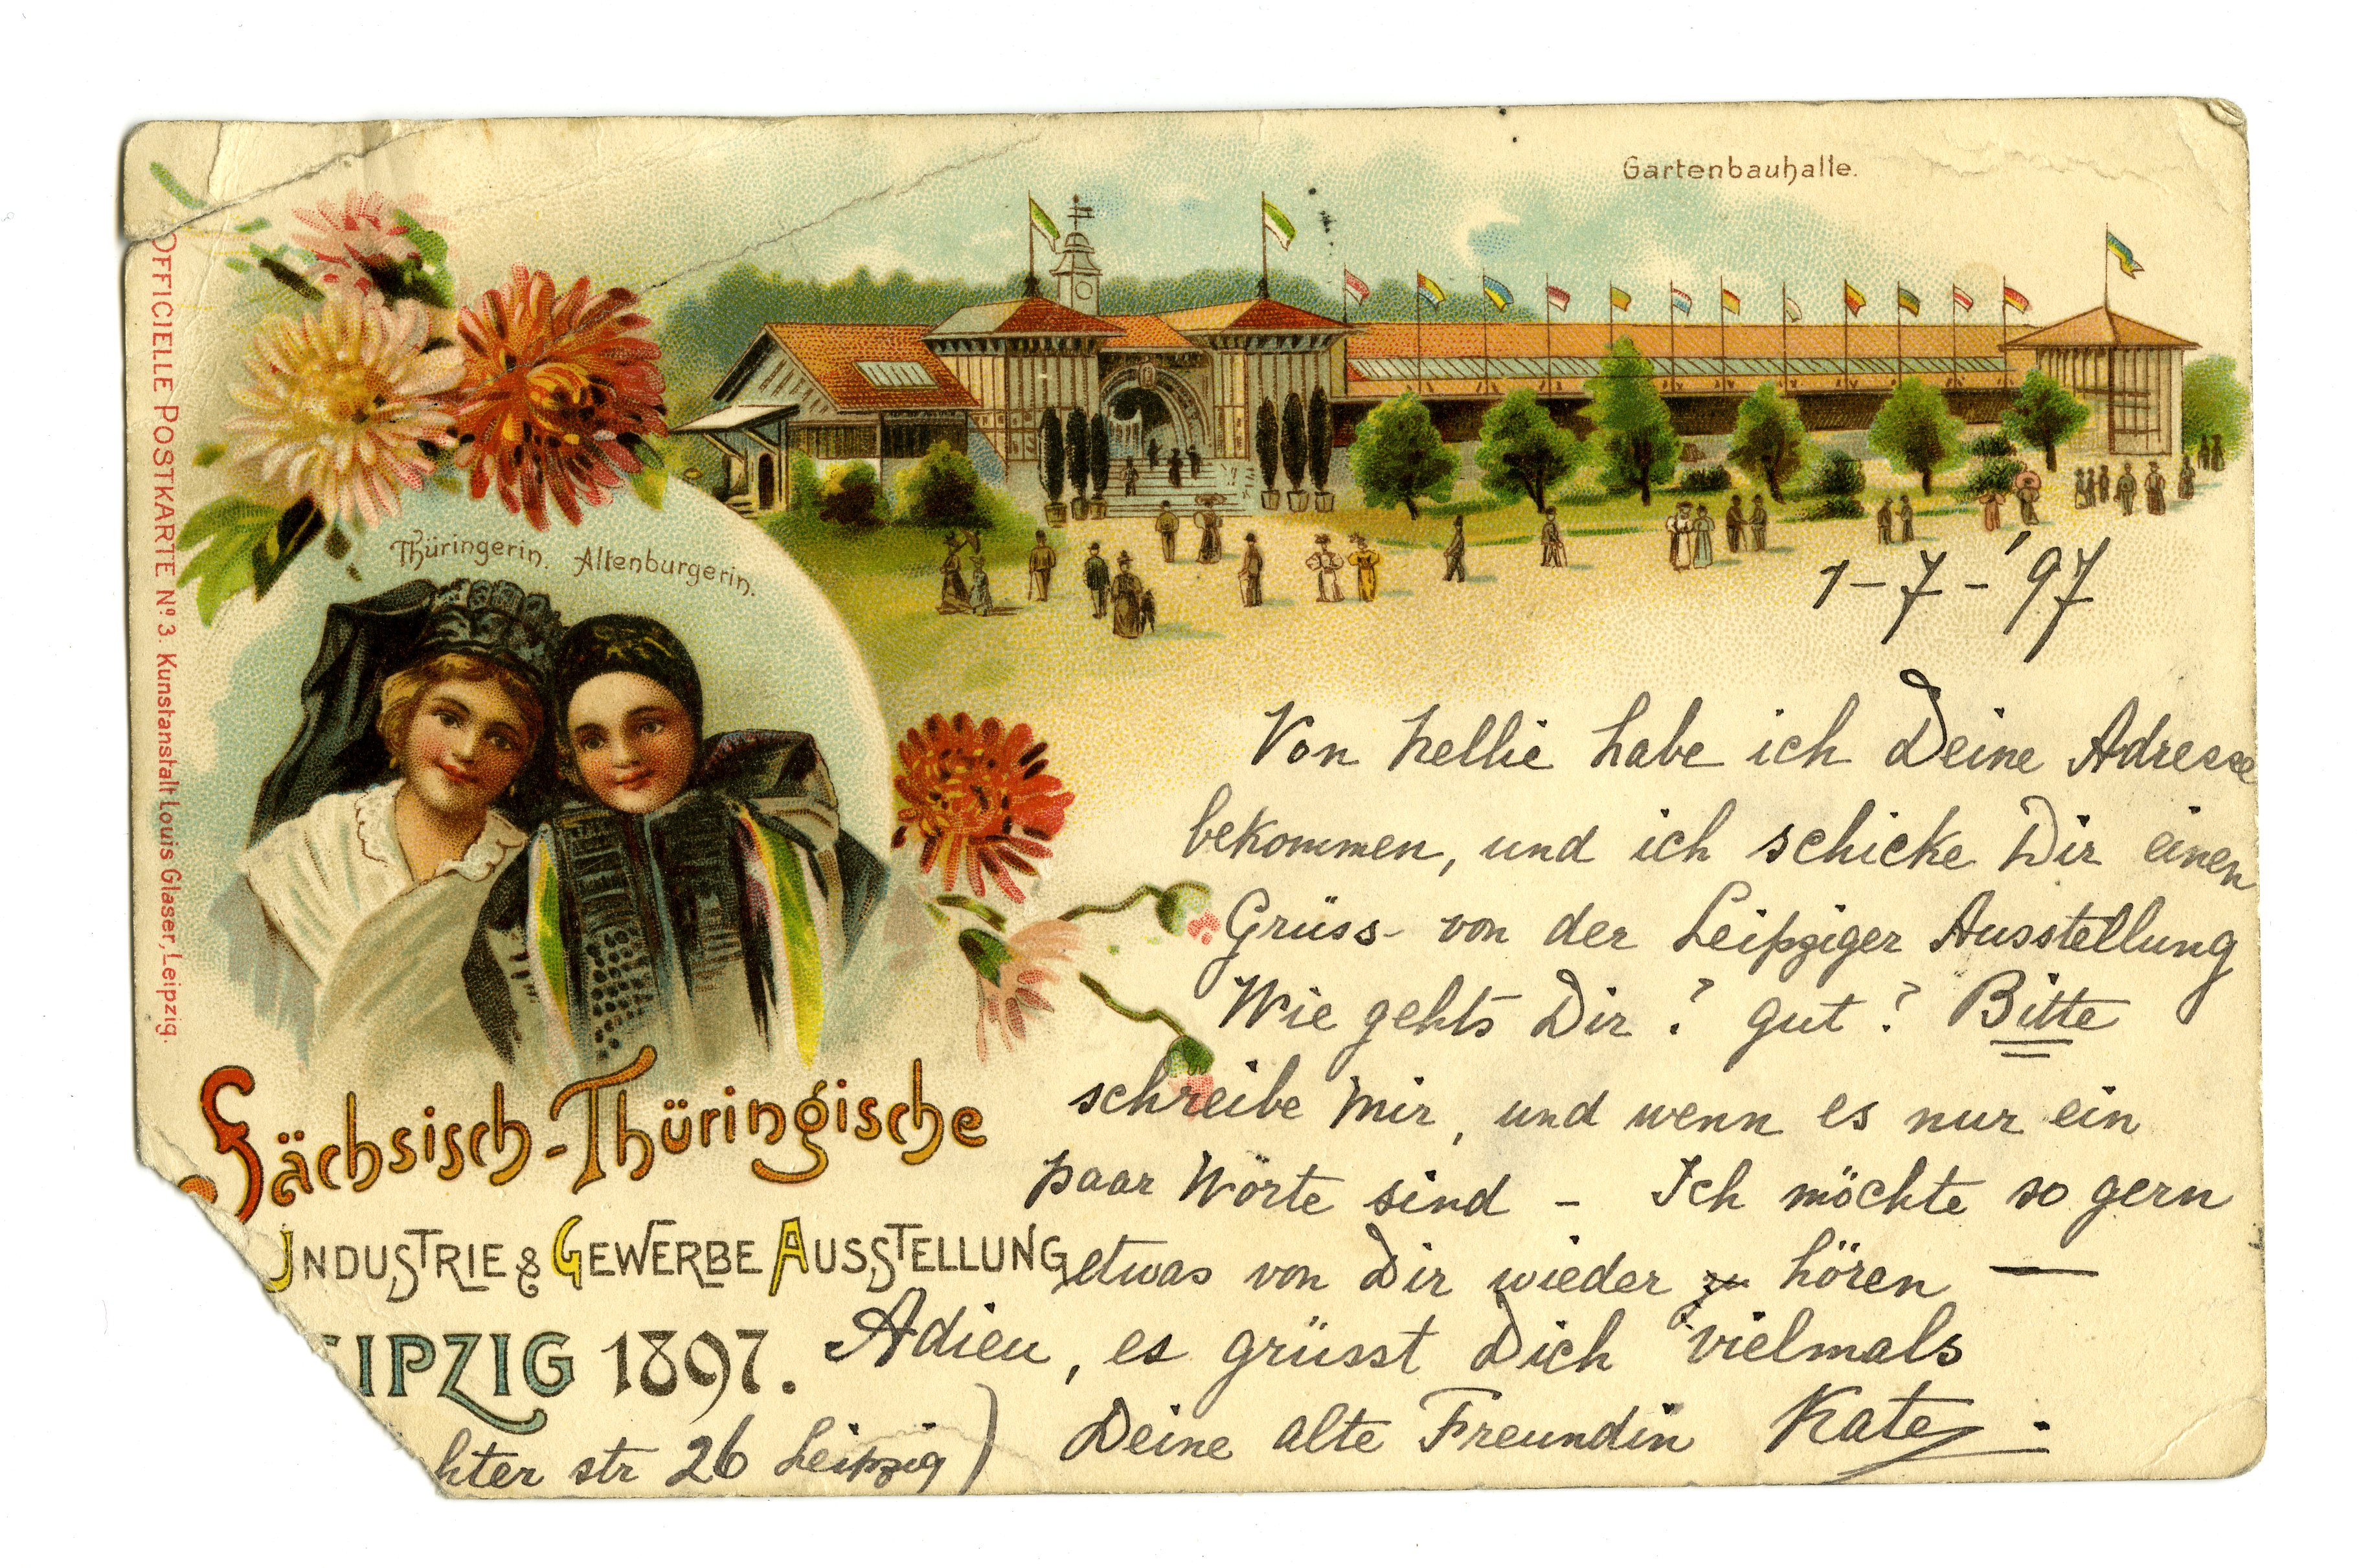 Gartenbauhalle.
OFFICIELLE POSTKARTE No. 3. Kunstanstalt Louis Glaser, Leipzig.
Thüringerin. Altenburgerin.
Sächsisch-Thüringische
INDUSTRIE & GEWERBE AUSSTELLUNG
EIPZIG 1897.
1-7-'97
Von Nellie habe ich Deine Adresse
bekommen, und ich schicke Dir einen
Grüss von der Leipziger Ausstellung
Wie gehts Dir? gut? Bitte
schreibe mir, und wenn es nur ein
paar Wörte sind - Ich möchte so gern
etwas von Dir wieder hören —
Adieu, es grüsst Dich vielmals
Deine alte Freundin Kate.
hter str 26 Leipzig)